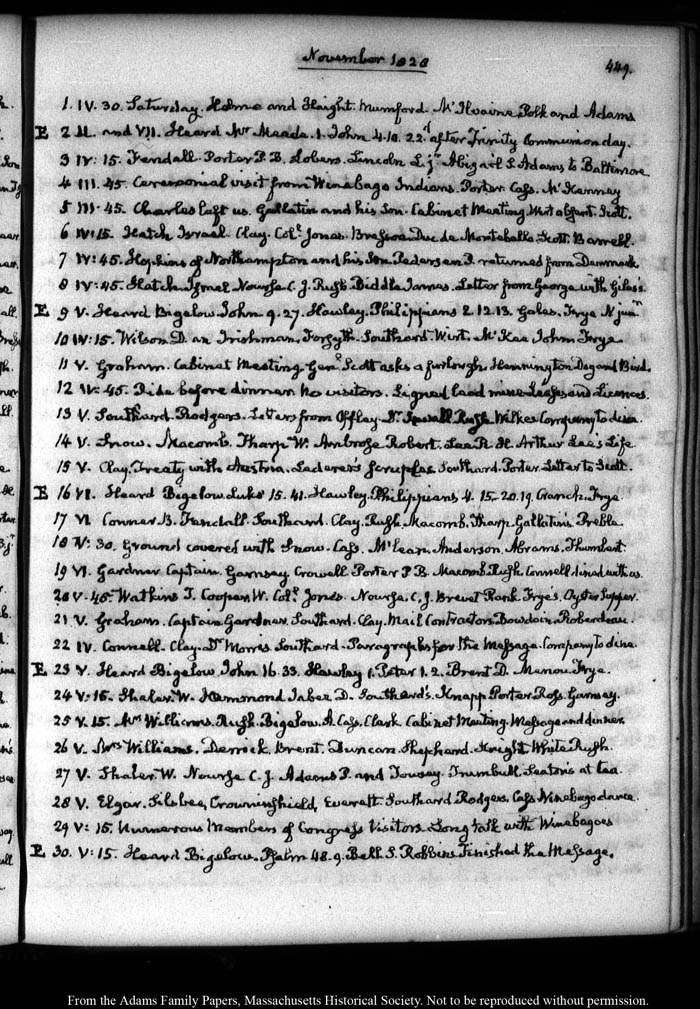 November 1828
449.
1. IV. 30. Saturday. Holme and Haight. Mumford. McIlvaine, Polk and Adams
E 2 II. and VII. Heard Mr Meade. 1. John 4.10. 22d after Trinity Communion day.
3 IV: 15. Kendall. Porter P. B. Lincoln L. jr Abigail S. Adams to Baltimore
4 III. 45. Ceremonial visit from Winebago Indians. Porter. Cass. McKenney
5 III. 45. Charles left us. Gallatin and his Son. Cabinet Meeting. Wirt absent. Scott.
6 IV: 15. Hatch Israel. Clay. Coll Jones. Bresson. Duc de Montebello. Scott. Barrell
7 IV: 45. Hopkins of Northampton and his Son. Pedersen P. returned from Denmark
8 IV: 45. Hatch Ismel Nourse C. J. Rush. Biddle James. Letter from George with Giles's
E 9 V. Heard Bigelow John 9. 27. Hawley. Philippians 2. 12. 13. Gales. Frye N. junr
10 IV: 15. Wilson D. an Irishman. Forsyth. Southard. Wirt. McKee John Frye
11 V. Graham. Cabinet Meeting. Genl Scott asks a furlough. Hennington Deg and Bird.
12 IV: 45. Ride before dinner. No visitors. Signed lead mine Leases and Licences.
13 V. Southard Rodgers. Letters from Offley. Dr Rush Wilkes. Company to dine.
14 V. Snow. Macomb. Tharp W. Ambrose Robert. Lee R. H. Arthur Lee's Life
15 V. Clay. Treaty with Austria. Lederer's scruples. Southard. Porter. Letter to Scott.
E 16 VI. Heard Bigelow. Luke 15. 41. Hawley. Philippians 4. 15–20. 19. Cranch. Frye
17 VI Conner B. Kendall. Southard. Clay. Rush. Macomb. Tharp. Gallatin's. Preble
18 V: 30. Ground covered with Snow. Cass. McLean. Anderson. Abrams. Thumbert
19 VI. Gardner Captain. Garnsey Crowell Porter P B. Macomb. Rush. Connell dined with us.
20 V. 45. Watkins T. Cooper W. Coll Jones. Nourse. C. J. Brevet Rank. Frye's. Oyster Supper.
21 V. Graham. Captain Gardner. Southard. Clay. Mail Contractors. Bowdoin. Roberdeau.
22 IV. Connell. Clay. Dr Morris Southard. Paragraphs for the Message. Company to dine.
E 23 V. Heard Bigelow John 16. 33. Hawley 1. Peter 1. 2. Brent D. Menou. Frye.
24 V: 15. Shaler W. Hammond Jabez D. Southard's. Knapp. Porter. Ross. Garnsey.
25 V. 15. Mrs Williams. Rush. Bigelow. A. Cass. Clark. Cabinet Meeting. Message and dinner.
26 V. Mrs Williams. Derrick. Brent. Duncan. Shephard. Knight. White. Rush.
27 V. Shaler W. Nourse C. J. Adams P. and Tousey. Trumbull. Seatons at tea.
28 V. Elgar. Silsbee, Crowninshield, Everett Southard Rodgers. Cass Winebago dance.
29 V: 15. Numerous Members of Congress Visitors. Long talk with Winebagoes
E 30. V: 15. Heard Bigelow. Psalm 48. 9. Bell S. Robbins Finished the Message.
From the Adams Family Papers, Massachusetts Historical Society. Not to be reproduced without permission.